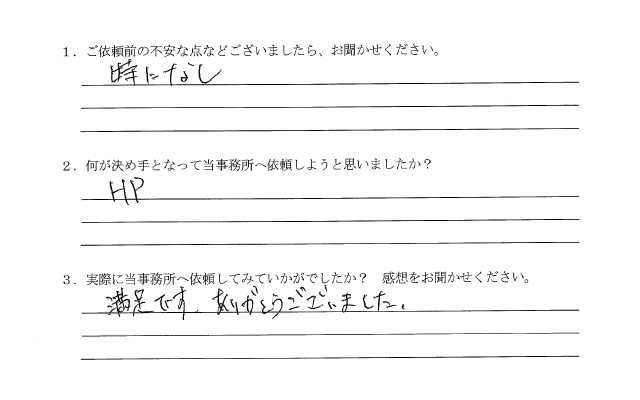 １．ご依頼前の不安な点などございましたら、お聞かせください。
時になし
２．何が決め手となって当事務所へ依頼しようと思いましたか？
HP
３．実際に当事務所へ依頼してみていかがでしたか？　感想をお聞かせください。
満足です。ありがとうございました。